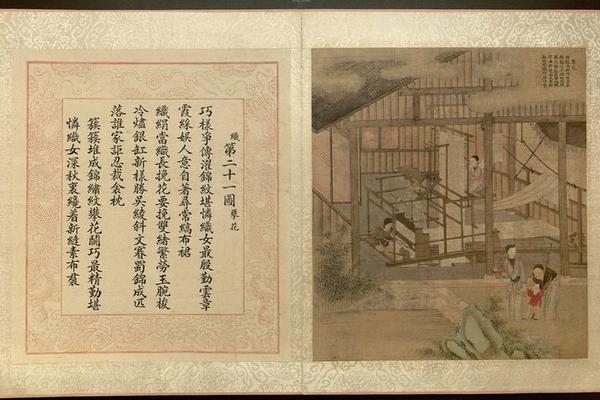 織第二十一圖攀花
巧樣爭傳濯錦紋堪憐織女最殷勤雲章
霞綵娛人意自著尋常縞布裙
織絹當織長挽花要挽雙緒繁勞玉腕梭
冷燼銀缸新樣勝吳綾斜文賽蜀錦成匹
落誰家詎忍裁衾枕
簇簇堆成錦繡紋攀花鬬巧最精勤堪
憐織女深秋裏纔着新縫素布裠